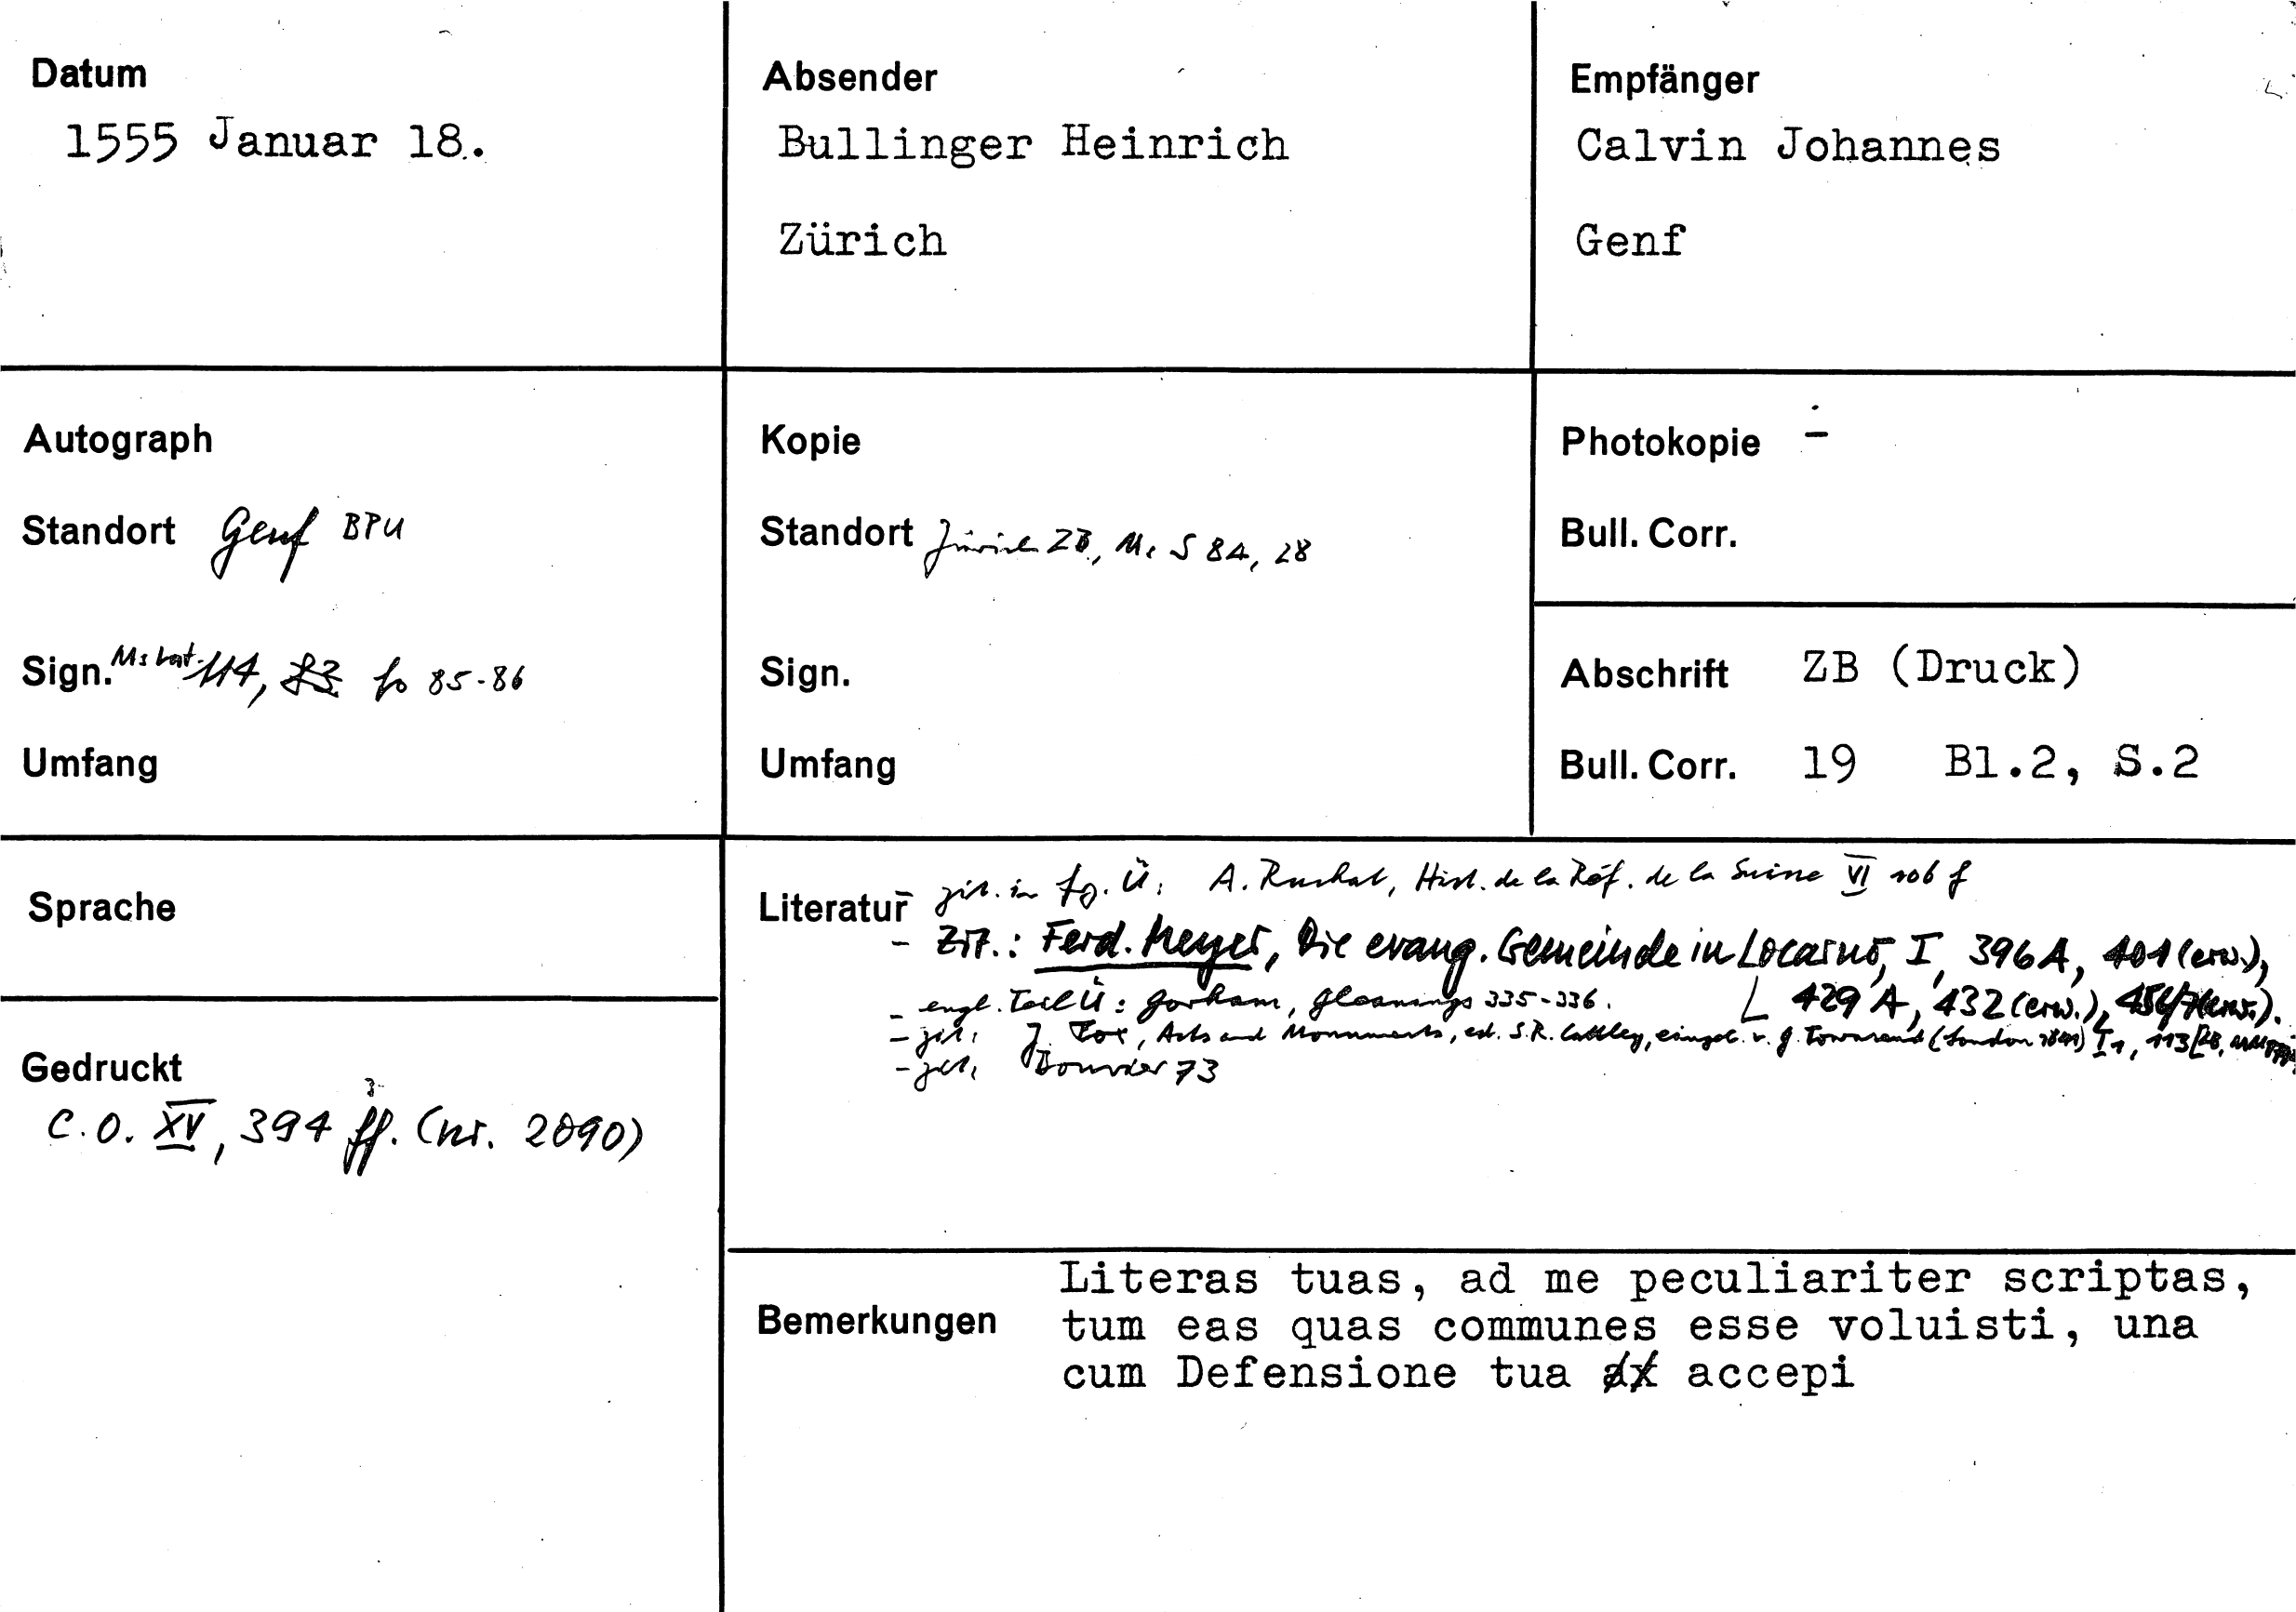 Datum
1555 Januar 18.
Absender
Bullinger Heinrich
Zürich
Empfänger
Calvin Johannes
Genf
Autograph
Standort Genf BPU
Sign. Ms lat. 114, fo 85-86
Umfang
Kopie
Standort Zürich ZB, Ms S 84, 28
Sign.
Umfang
Photokopie -
Bull. Corr.
Abschrift ZB (Druck)
Bull. Corr. 19 Bl.2, S.2
Sprache
Gedruckt
C.O. XV, 394 ff. (nr. 2090)
Literatur - zit. in fg. Ü: A. Ruchat, Hist. de la Réf. de la Suisse VI 106 f
- Zit.: Ferd. Meyer, Die evang. Gemeinde in Locarno, I, 396 A, 401 (erw.),
429 A, 432 (erw.),
- engl. Teil Ü: Gorham, Gleanings 335-336.
- zit: J. Fox, Acts and Monuments, ed. S.R. Cattley, eingel. v. G. Townsend (London 1841) I 1, 113
- zit: Bouvier 73
Bemerkungen
Literas tuas, ad me peculiariter scriptas,
tum eas quas communes esse voluisti, una
cum Defensione tua accepi